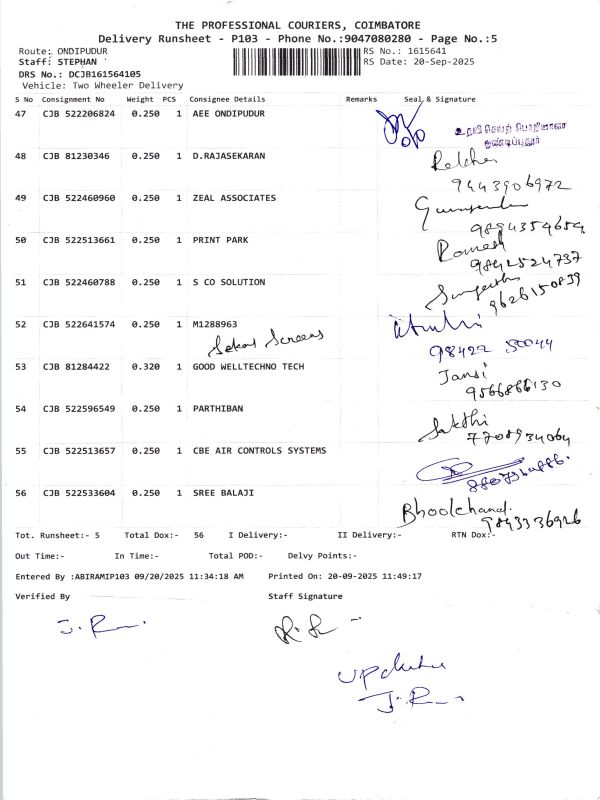 THE PROFESSIONAL COURIERS, COIMBATORE
Delivery Runsheet - P103 - Phone No.:9047080280 - Page No.:5
Route: ONDIPUDUR
RS No.: 1615641
Staff: STEPHAN
RS Date: 20-Sep-2025
DRS No.: DCJB161564105
Vehicle: Two Wheeler Delivery
S No Consignment No Weight PCS Consignee Details Remarks Seal & Signature
47 CJB 522206824 0.250 1 AEE ONDIPUDUR
உதவி செயற் பொறியாளர்
ஒண்டிப்புதூர்
48 CJB 81230346 0.250 1 D.RAJASEKARAN
9443906972
49 CJB 522460960 0.250 1 ZEAL ASSOCIATES
9894354654
50 CJB 522513661 0.250 1 PRINT PARK Ramesh
9842524737
51 CJB 522460788 0.250 1 S CO SOLUTION
9626150839
52 CJB 522641574 0.250 1 M1288963
Sekar Screens
98422 50044
53 CJB 81284422 0.320 1 GOOD WELLTECHNO TECH Jansi
9566866130
54 CJB 522596549 0.250 1 PARTHIBAN Sakthi
7708934064
55 CJB 522513657 0.250 1 CBE AIR CONTROLS SYSTEMS
56 CJB 522533604 0.250 1 SREE BALAJI Bhoolchand.
9843336926
Tot. Runsheet:- 5 Total Dox:- 56 I Delivery:- II Delivery:- RTN Dox:-
Out Time:- In Time:- Total POD:- Delvy Points:-
Entered By :ABIRAMIP103 09/20/2025 11:34:18 AM Printed On: 20-09-2025 11:49:17
Verified By Staff Signature